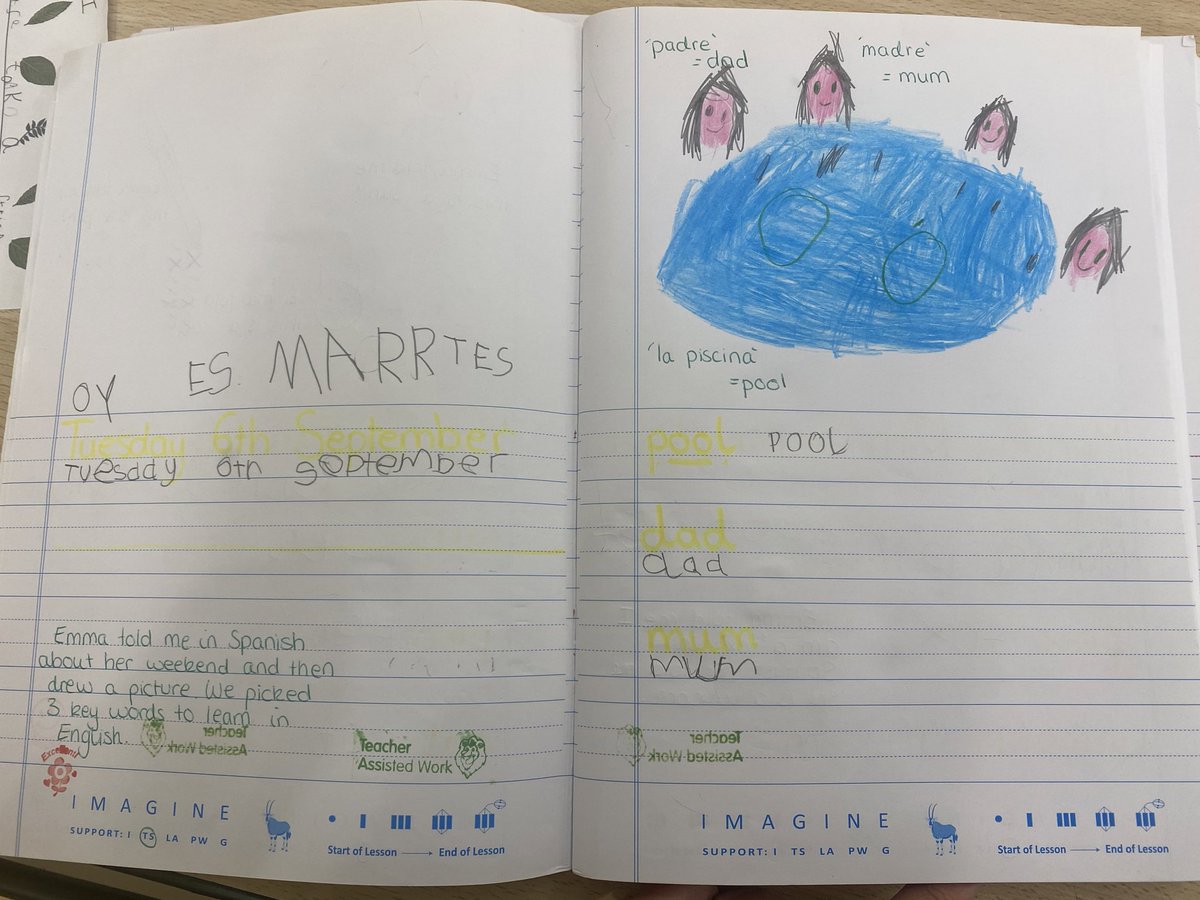 OY ES. MARRTES
Tuesday 6th September
Tuesday 6th september
Emma told me in Spanish
about her weekend and then
drew a picture. We picked
3 key words to learn in
English.
Excellent
Teacher
Assisted Work
Teacher
Assisted Work
IMAGINE
SUPPORT: I TS LA PW G
Start of Lesson → End of Lesson
'padre'
= dad
'madre'
= mum
'la piscina'
=pool
pool POOL
dad
dad
mum
mum
Teacher
Assisted Work
IMAGINE
SUPPORT: I TS LA PW G
Start of Lesson → End of Lesson